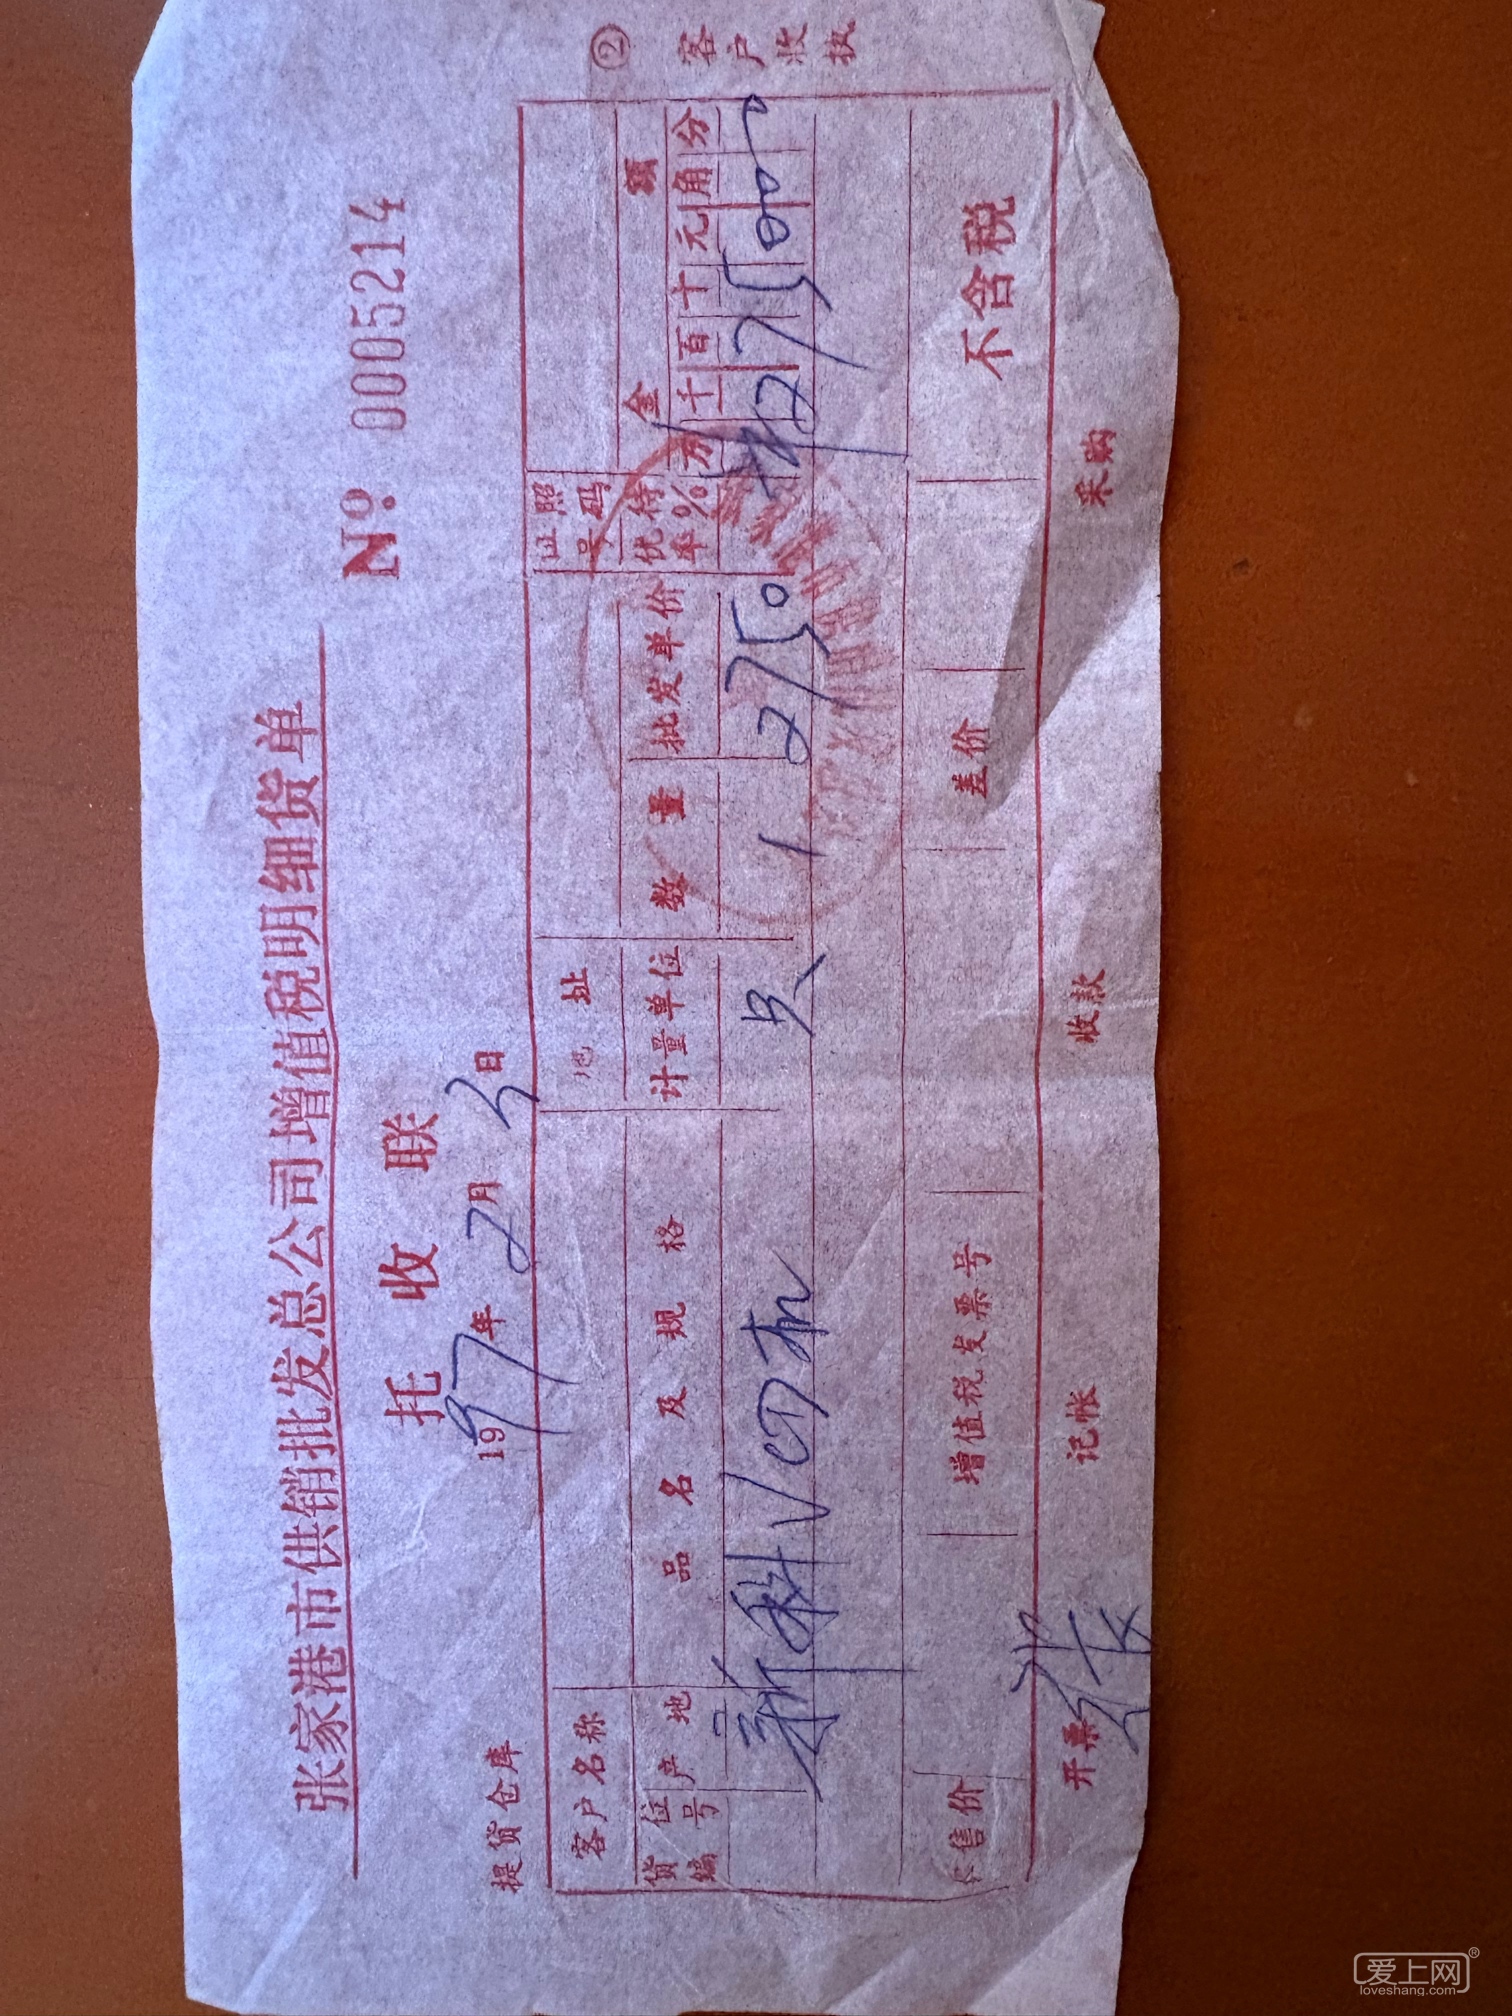 张家港市供销批发总公司增值税明细货单
№ 0005214
托收联
提货仓库
1997年2月 日
② 客户收执
客户名称
地址
证照号码
货位编号
产地
品名及规格
计量单位
数量
批发单价
优待率%
金额
万千百十元角分
新科VCD机
只
1
2750
¥275000
零售价
增值税发票号
差价
不含税
开票
张
记帐
收款
采购
爱上网®
loveshang.com